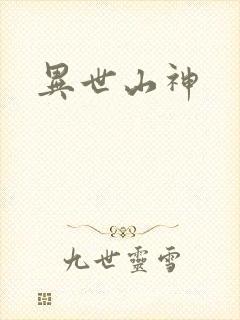 異世山神
九世靈雪